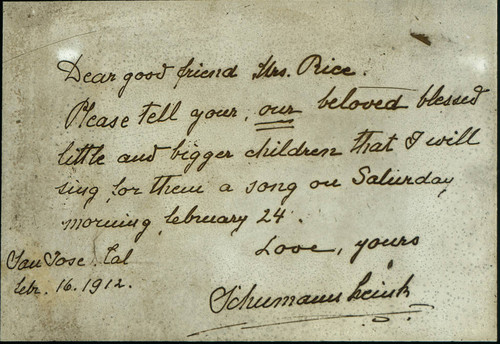 Dear good friend Mrs. Rice.
Please tell your, our beloved blessed
little and bigger children that I will
sing for them a song on Saturday
morning, february 24.
Love, yours
San Jose. Cal
febr. 16. 1912.
Schumann Heink